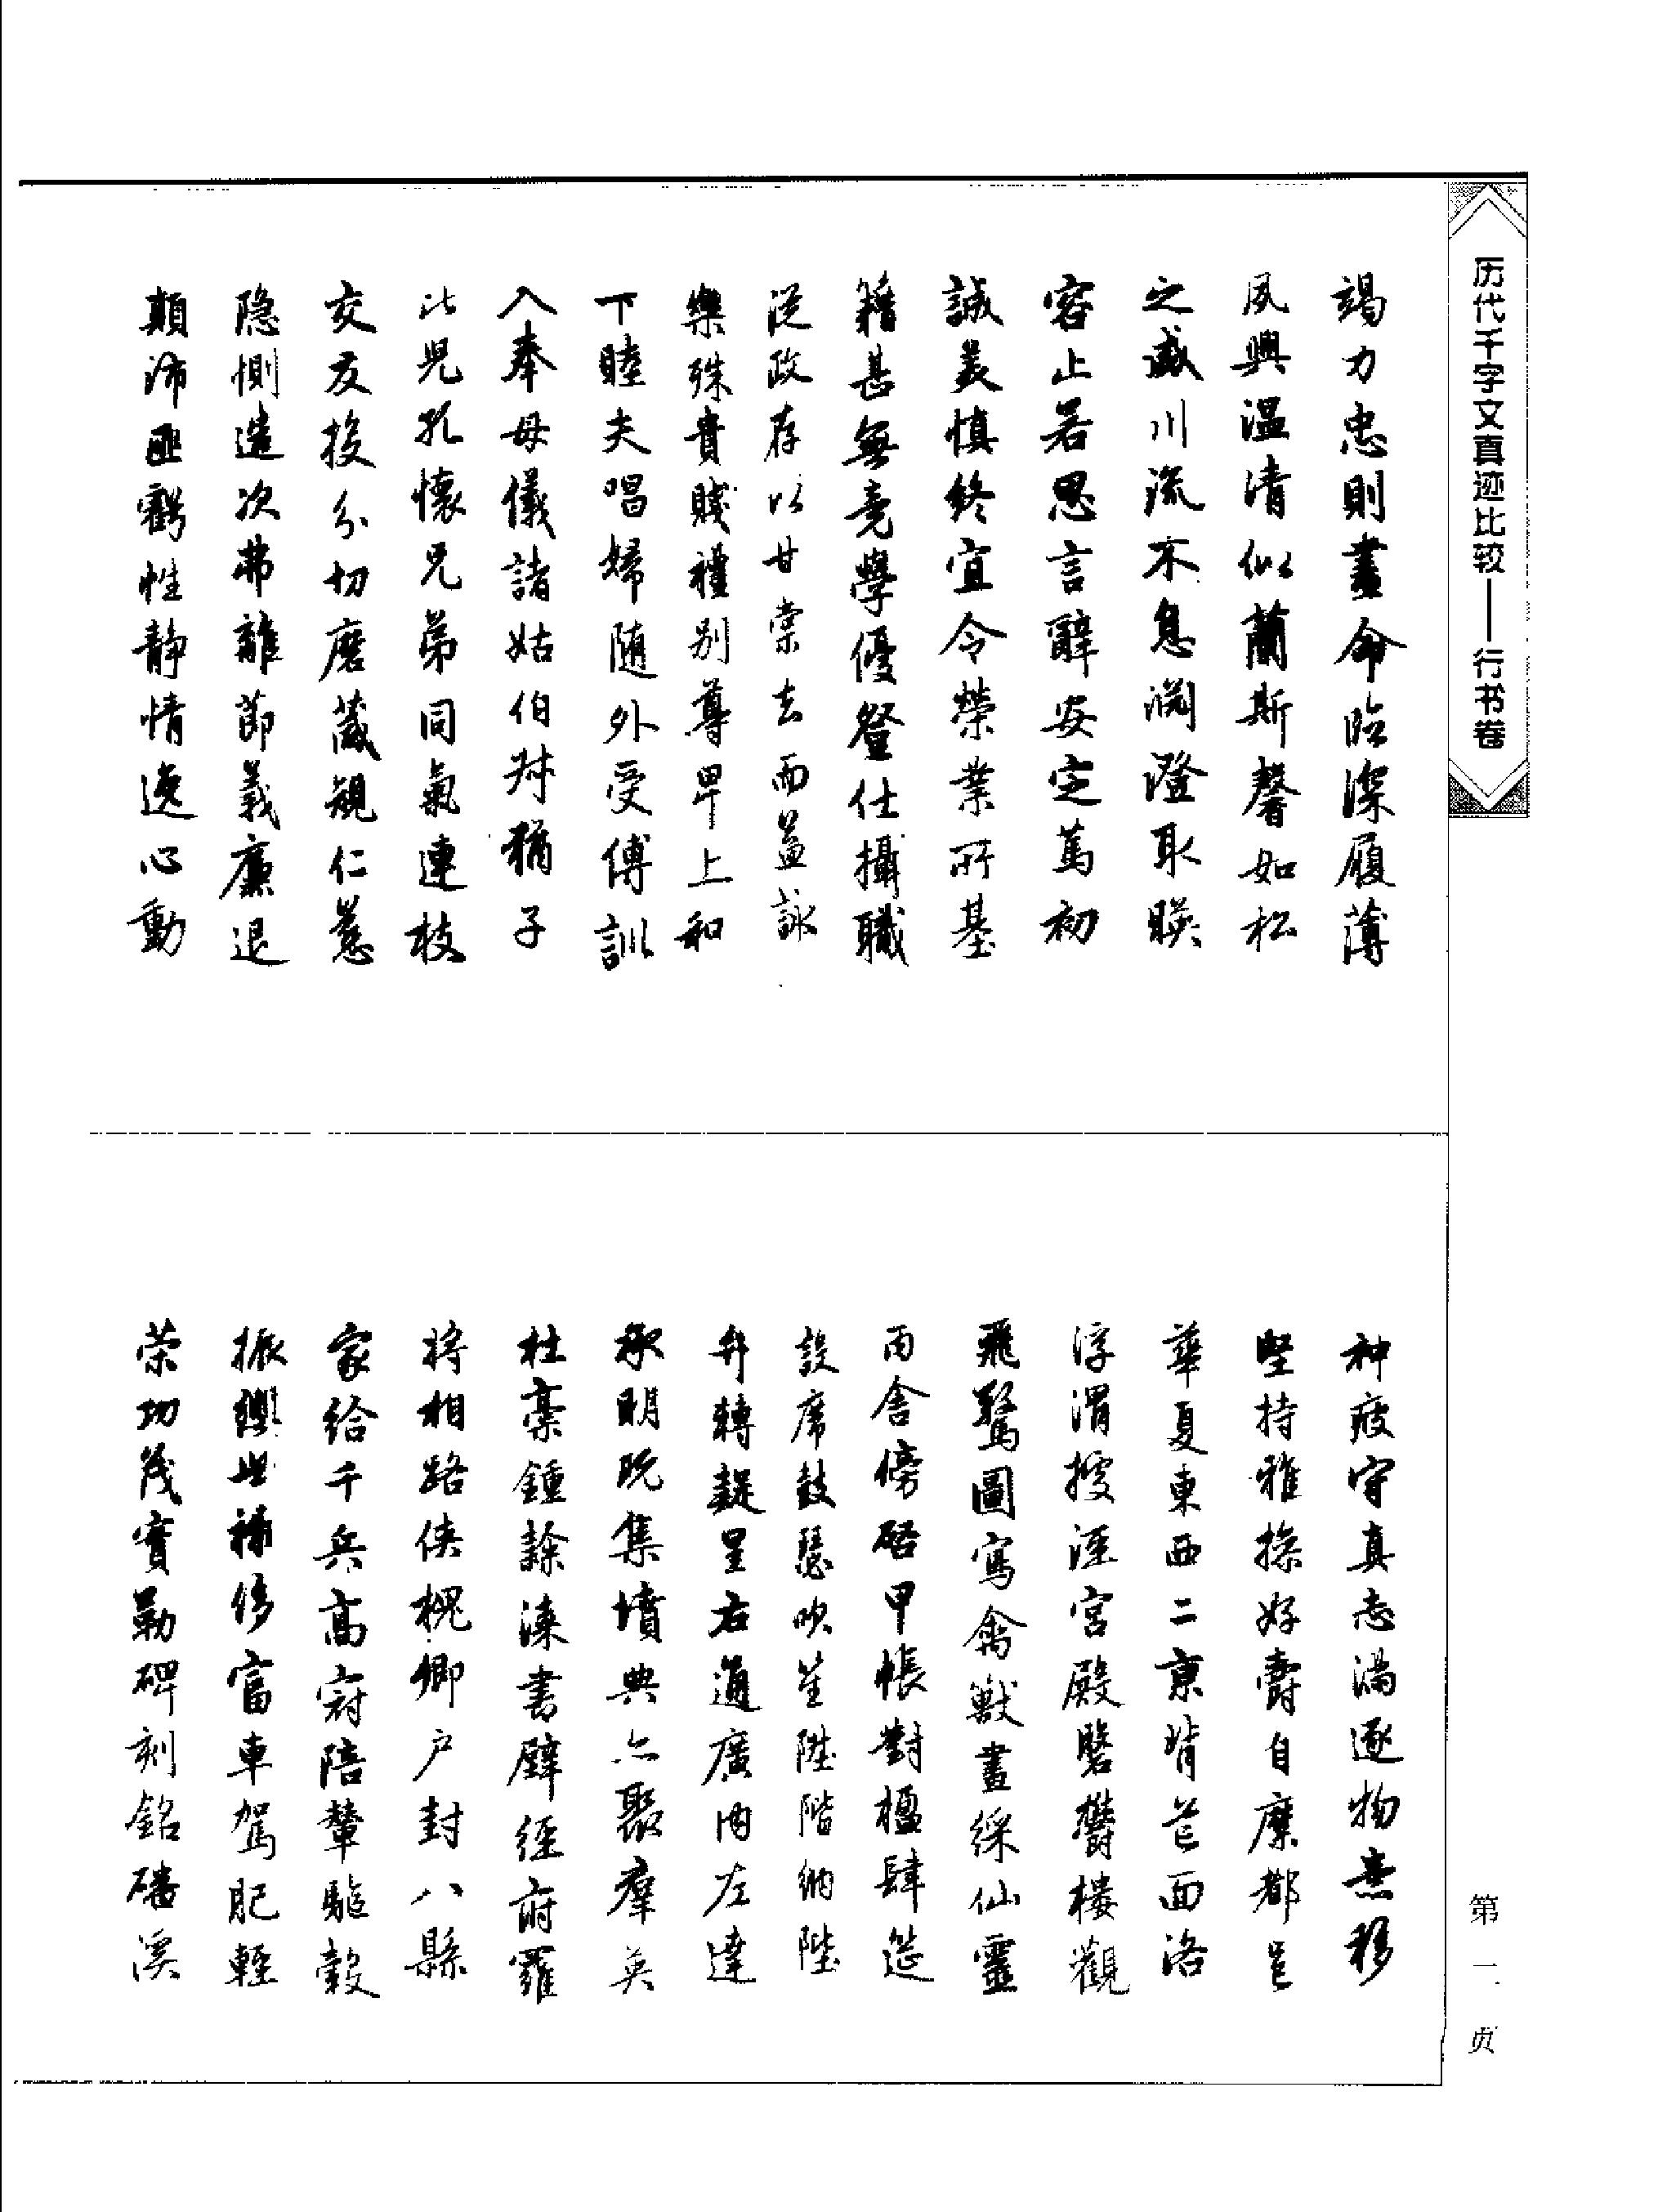 历代千字文真迹比较——行书卷
竭力忠則盡命臨深履薄
夙興温凊似蘭斯馨如松
之盛川流不息淵澄取暎
容止若思言辭安定篤初
誠美慎終宜令榮業所基
籍甚無竟學優登仕攝職
從政存以甘棠去而益詠
樂殊貴賤禮别尊卑上和
下睦夫唱婦随外受傅訓
入奉母儀諸姑伯叔猶子
比兒孔懷兄弟同氣連枝
交友投分切磨箴規仁慈
隐惻造次弗離節義廉退
顛沛匪虧性静情逸心動
神疲守真志滿逐物意移
堅持雅操好爵自縻都邑
華夏東西二京背芒面洛
浮渭據涇宮殿磐欝樓觀
飛驚圖寫禽獸畫綵仙靈
丙舍傍啓甲帳對楹肆筵
設席鼓瑟吹笙陞階納陛
弁轉疑星右通廣内左達
承明既集墳典亦聚羣英
杜稾鍾隸漆書壁經府羅
將相路俠槐卿户封八縣
家給千兵高冠陪輦驅轂
振纓世祿侈富車駕肥輕
荣功茂實勒碑刻銘磻溪
第一页